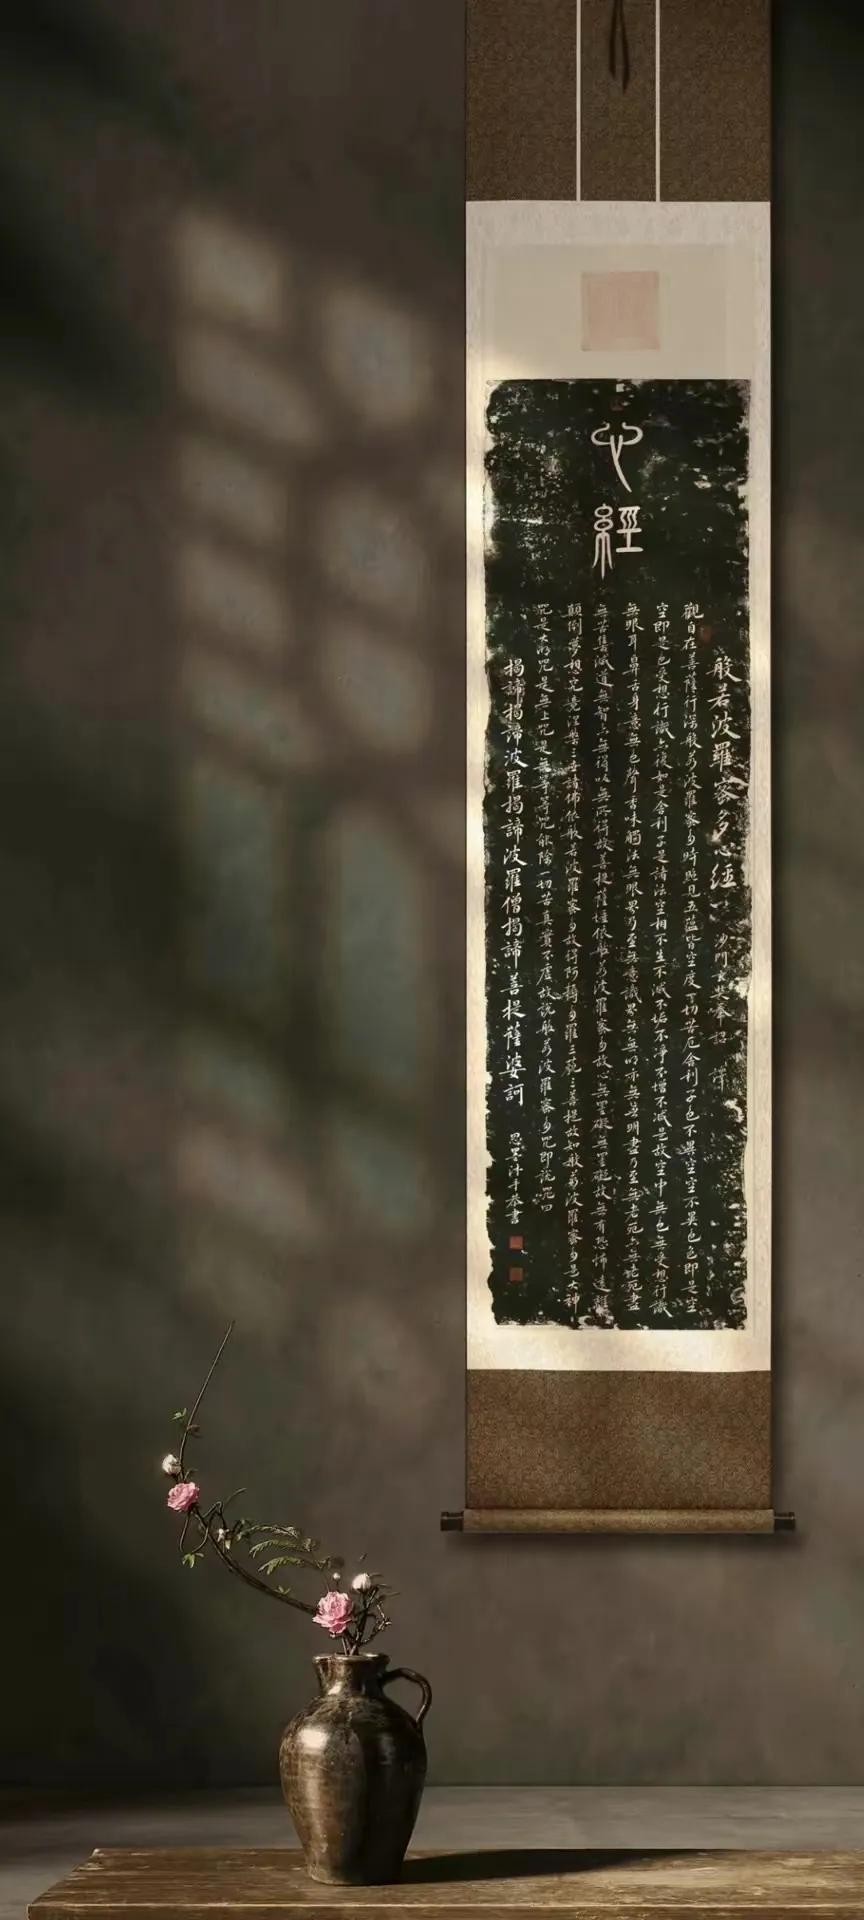 心經
般若波羅密多心經 沙門玄奘奉詔譯
觀自在菩薩行深般若波羅密多時照見五蘊皆空度一切苦厄舍利子色不異空空不異色色即是空
空即是色受想行識亦復如是舍利子是諸法空相不生不滅不垢不淨不增不減是故空中無色無受想行識
無眼耳鼻舌身意無色聲香味觸法無眼界乃至無意識界無無明亦無無明盡乃至無老死亦無老死盡
無苦集滅道無智亦無得以無所得故菩提薩埵依般若波羅密多故心無罣礙無罣礙故無有恐怖遠離
顛倒夢想究竟涅槃三世諸佛依般若波羅密多故得阿耨多羅三藐三菩提故知般若波羅密多是大神
咒是大明咒是無上咒是無等等咒能除一切苦真實不虛故說般若波羅密多咒即說咒曰
揭諦揭諦波羅揭諦波羅僧揭諦菩提薩婆訶
恭書